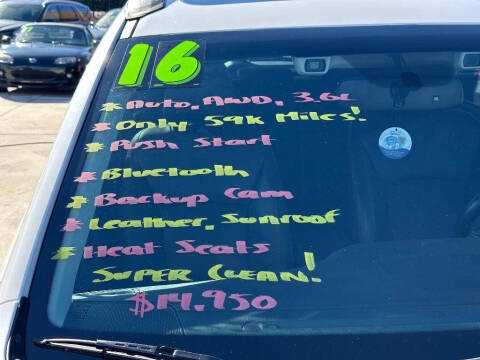 16
* Auto, AWD, 3.6L
* Only 59k Miles!
* Push Start
* Bluetooth
* Backup Cam
* Leather, Sunroof
* Heat Seats
Super Clean!
$14,950